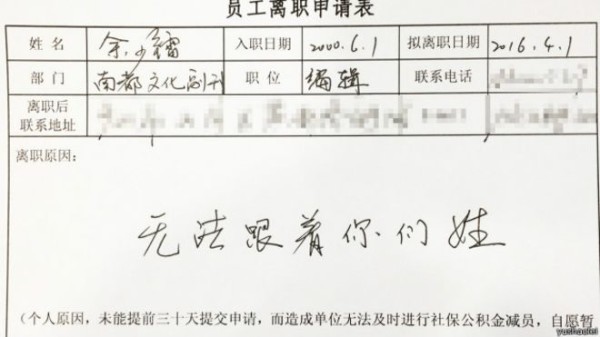 员工离职申请表
姓 名 余少镭 入职日期 2000.6.1 拟离职日期 2016.4.1
部 门 南都文化副刊 职 位 编辑 联系电话
离职后
联系地址
离职原因：
无法跟着你们姓
（个人原因，未能提前三十天提交申请，而造成单位无法及时进行社保公积金减员，自愿暂
yushaolei